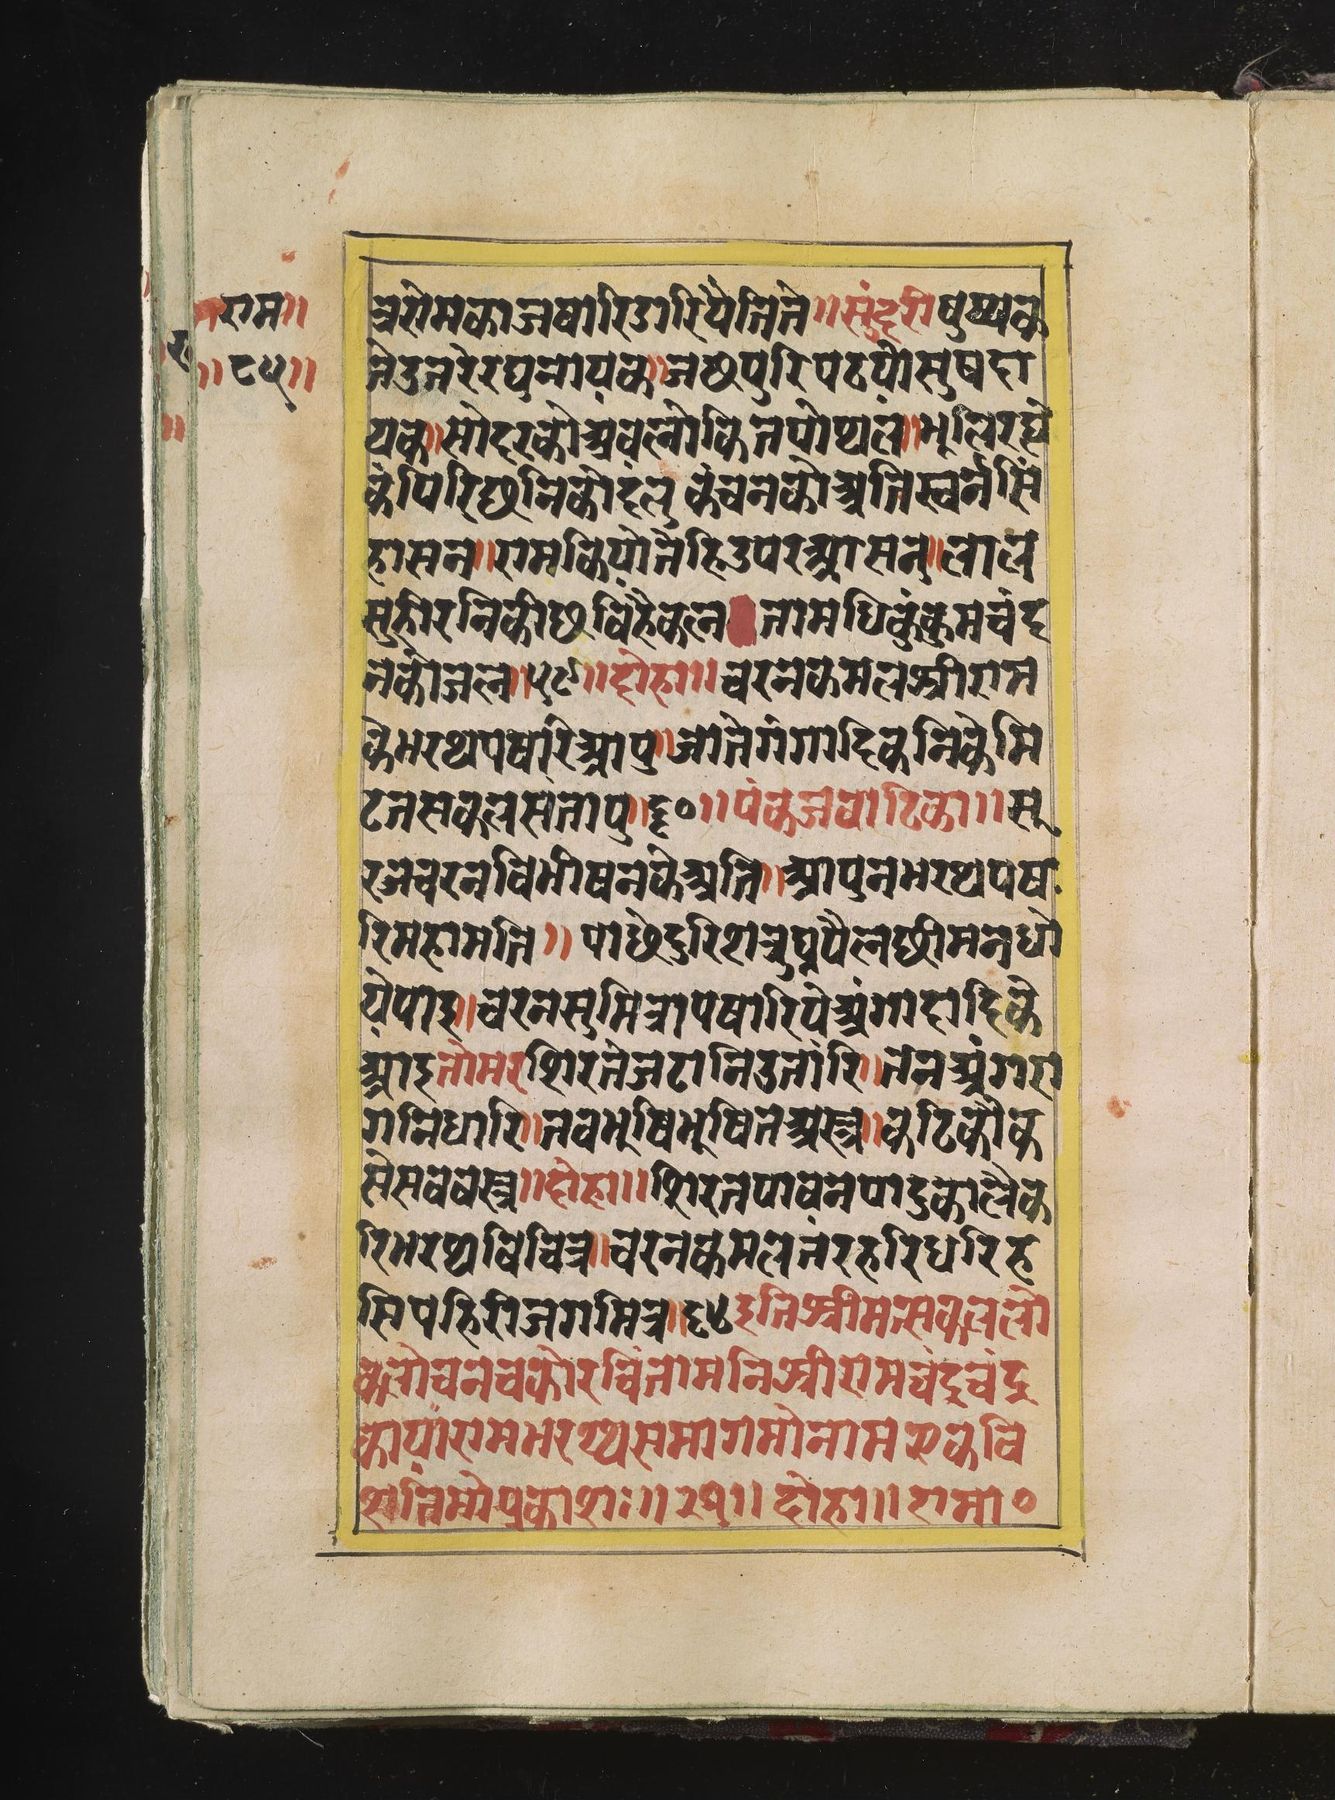 राम॥
॥८५॥
त्ररोमकाजषारिडारियेतिते॥सुंदरीपुष्पक
तेउतरेरघुनायक॥जछपुरिपठयौसुषदा
यक॥सोदरकोअवलोकितपोथल॥भूलिरहे
कंपिरिछनिकोदलु कंचनकोअतिस्वर्नसिं
हासन॥रामकियोतेहिउपरआसन॥लाल
सुहीरनिकीछविहैकल तामधिकुंकुमचंद
नकोजल॥५९॥दोहा॥चरनकमलश्रीराम
केभरथपषारिआपु॥जातेगंगादिकनिकेमि
टतसकलसतापु॥६०॥पंकजवाटिका॥सू
रजचरनविभीषनकेअति॥आपुनभरथपष
रिमहामति॥पाछेदुरिशत्रुघ्नपैलछीमनधो
येपाइ॥चरनसुमित्रापषारिपेअंगादादिके
आइतोमरशिरतेजटानिउतारि॥तनअंगरा
गनिधारि॥नवभूषिभूषितअस्त्र॥कटिकौक
सेसववस्त्र॥दोहा॥शिरतपावनपादुकालैक
रिभरथविचित्र॥चरनकमलतरहरिधरिह
सिपहिरीजगमित्र॥६४इतिश्रीमत्सकललो
कलोचनचकोरचिंतामनिश्रीरामचंद्रचंद्र
कायांरामभरथ्थसमागमोनामएकवि
शतिमोप्रकाशः॥२१॥ दोहा॥रामा०